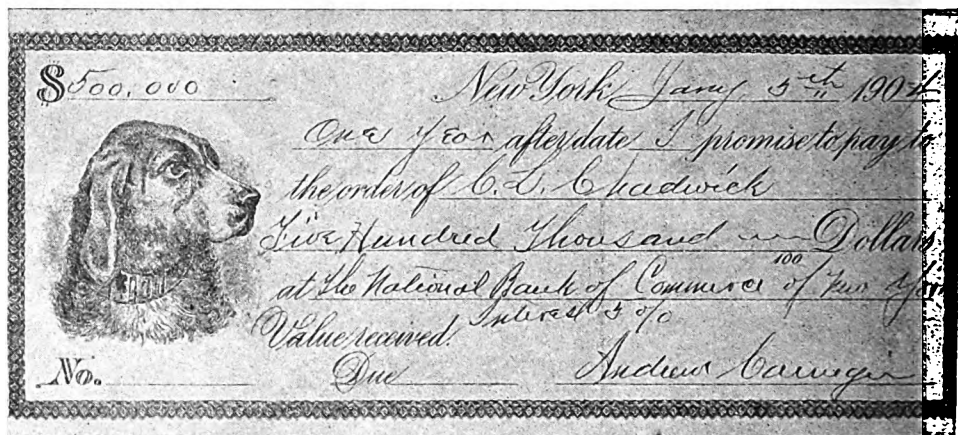 $ 500,000
New York Jany 5th 1904
One year after date I promise to pay to
the order of C. L. Chadwick
Five Hundred Thousand Dollars
100
at the National Bank of Commerce of New York
Value received. Interest 5 %
No. Due Andrew Carnegie